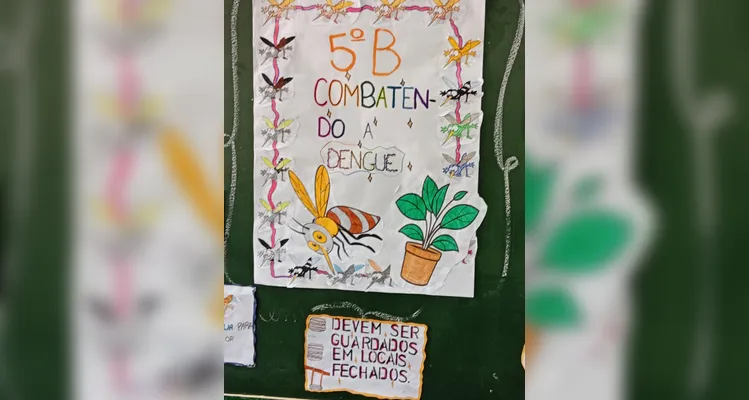 5º B
COMBATEN-
DO A
DENGUE
UA PARA
OR
DEVEM SER
GUARDADOS
EM LOCAIS
FECHADOS.